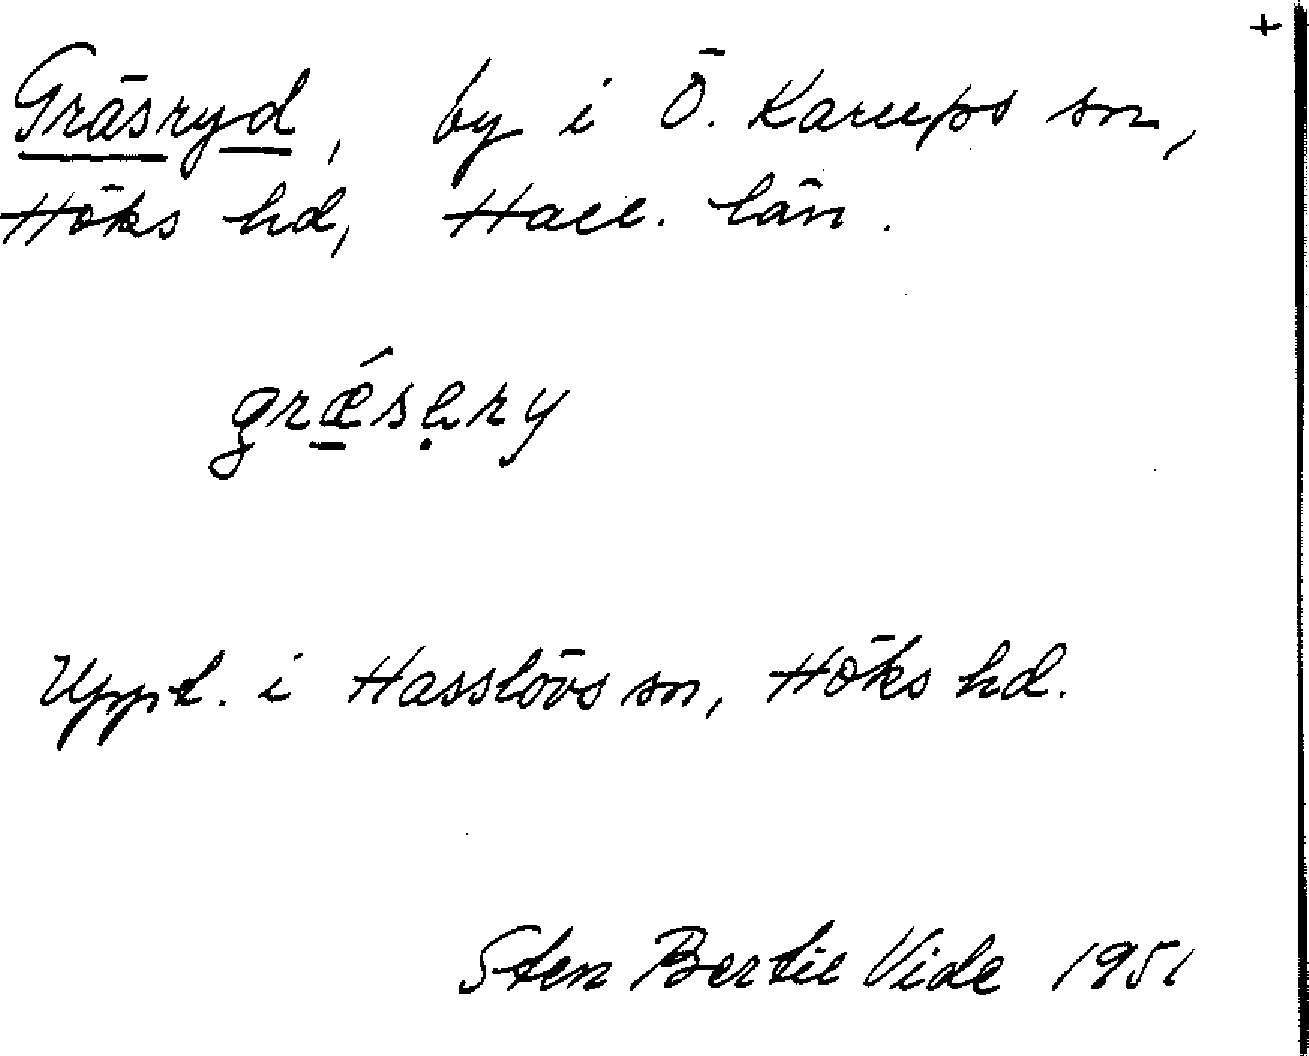 +
Gräsryd, by i Ö. Karups sn,
Höks hd, Hall. län.
grǽsẹry
Uppt. i Hasslövs sn, Höks hd.
Sten Bertil Vide 1951